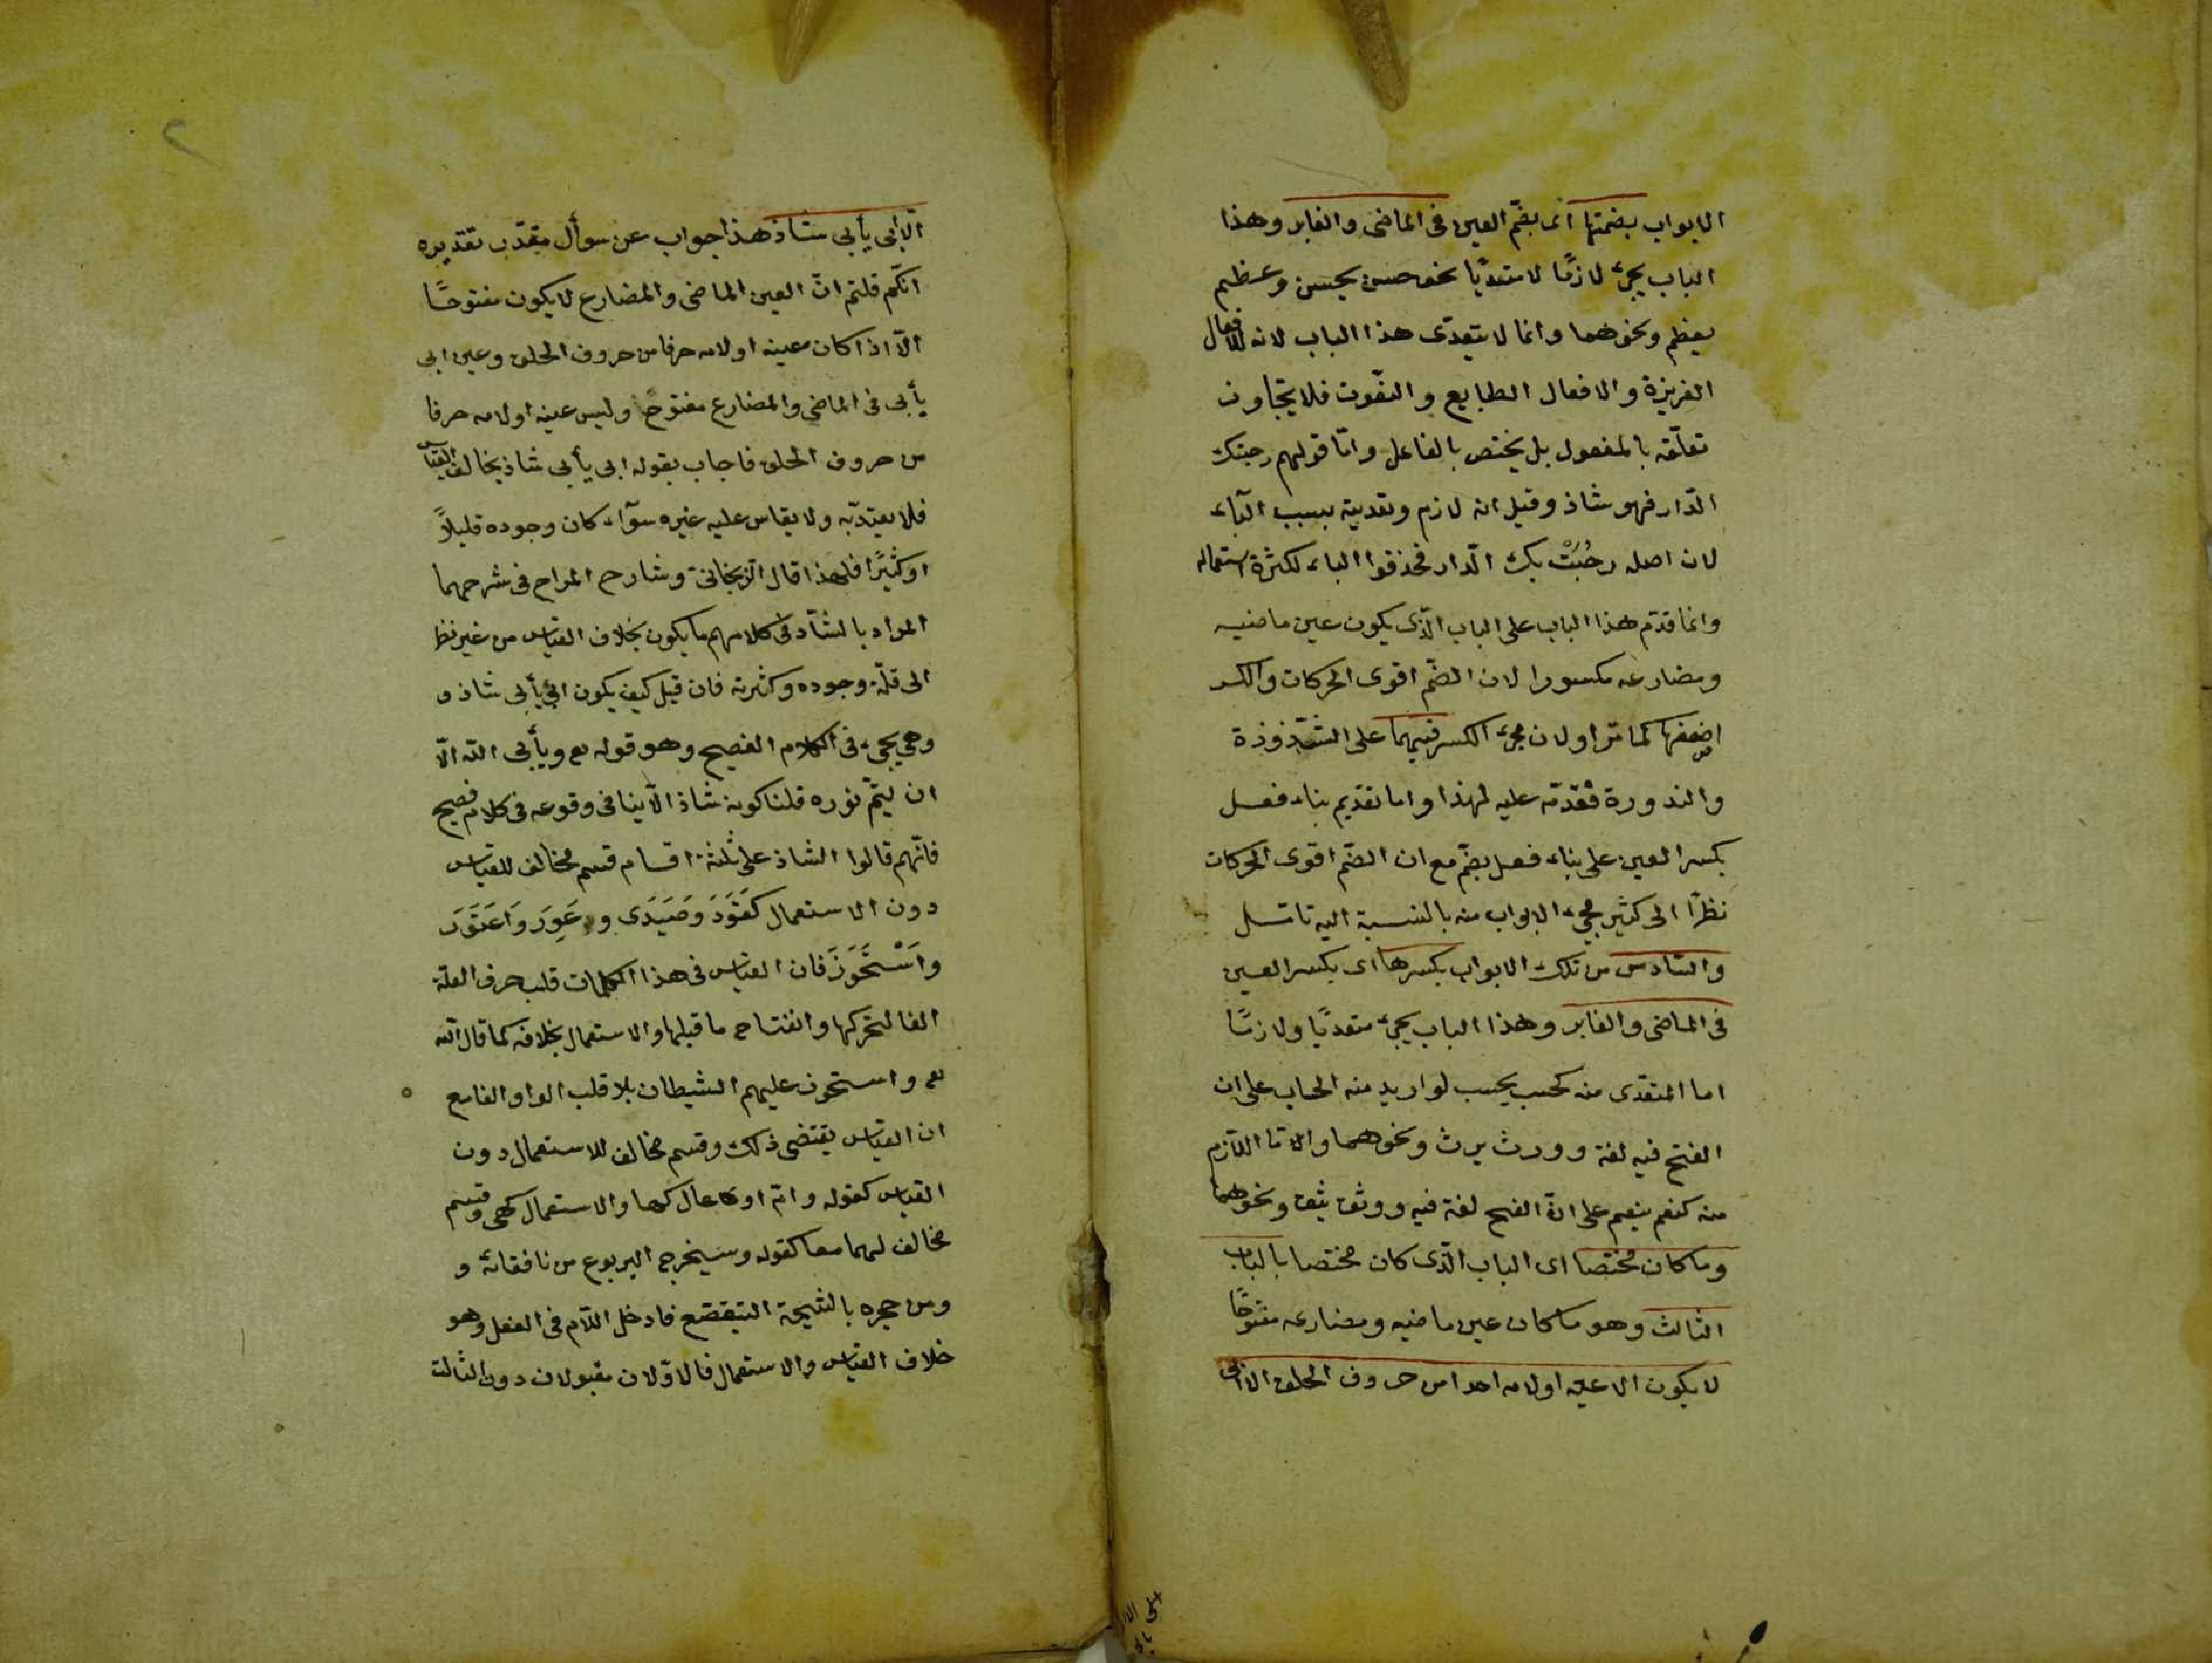 الابواب بضمتها اى بضمّ العين فى الماضى والغابر وهذا
الباب يجئ لازمًا لا متعديًا نحو حسن يحسن وعظم
يعظم ونحوهما وانما لا يتعدى هذا الباب لانه للافعال
الغريزة والافعال الطبايع والنعوت فلا يتجاوز
تعلّقه بالمفعول بل يختص بالفاعل وامّا قولهم رحبتك
الدّار فهو شاذ وقيل انه لازم وتعديته بسبب الباء
لان اصله رحُبَتْ بك الدّار فحذفوا الباء لكثرة استعماله
وانما قدّم هذا الباب على الباب الّذى يكون عين ماضيه
ومضارعه مكسورا لان الضمّ اقوى الحركات والكسر
اضعفها كما مرّ اولان مجئ الكسر فيهما على الشذوذة
والندورة فقدّمه عليه لهذا واما تقديم بناء فعل
بكسر العين على بناء فعل بضمّ مع ان الضمّ اقوى الحركات
نظرًا الى كثير مجئ الابواب منه بالنسبة اليه تامّل
والسّادس من تلك الابواب بكسرها اى بكسر العين
فى الماضى والغابر وهذا الباب يجئ متعديًا ولازمًا
اما المتعدى منه كحسب يحسب لو اريد منه الحساب على ان
الفتح فيه لغة وورث يرث ونحوهما وامّا اللّازم
منه كنعم ينعم على انّ الفتح لغة فيه ووثق يثق ونحوهما
وما كان مختصا اى الباب الّذى كان مختصا بالباب
الثالث وهو ما كان عين ماضيه ومضارعه مفتوحًا
لا يكون الا عينه او لامه احدا من حروف الحلق الا ابى
الّا ابى يأبى شاذ هذا جواب عن سوأل مقدّر تقديره
انكّم قلتم انّ العين الماضى والمضارع لا يكون مفتوحًا
الّا اذا كان عينه او لامه حرفا من حروف الحلق وعين ابى
يأبى فى الماضى والمضارع مفتوحًا وليس عينه او لامه حرفا
من حروف الحلق فاجاب بقوله ابى يأبى شاذ يخالف القياس
فلا يعتدّ به ولا يقاس عليه غيره سوآء كان وجوده قليلاً
او كثيرًا فلهذا قال الزنجانى وشارح المراح فى شرحهما
المراد بالشّاذ فى كلامهم ما يكون بخلاف القياس من غير نظر
الى قلّة وجوده وكثرته فان قيل كيف يكون ابى يأبى شاذ و
وهى يجئ فى الكلام الفصيح وهو قوله تع ويأبى الله الّا
ان يتمّ نوره قلنا كونه شاذا لا ينافى وقوعه فى كلام فصيح
فانّهم قالوا الشاذ على ثلثة اقسام قسم مخالف للقياس
دون الاستعمال كقَوَدَ وصَيَدَى و عَوِرَ واعتَوَرَ
واسْتَحْوَذَ فان القياس فى هذا الكلمات قلب حرف العلة
الفا لتحركها وانفتاح ما قبلها والاستعمال بخلافه كما قال الله
تع واستحوذ عليهم الشيطان بلا قلب الواو الفا مع
ان القياس يقتضى ذلك وقسم مخالف للاستعمال دون
القياس كقوله وامّ اوعال كها والاستعمال كهى وقسم
مخالف لهما معا كقوله وسيخرج اليربوع من نافقائه و
ومن حجره بالشيحة اليتقصّع فادخل اللّام فى الفعل وهو
خلاف القياس والاستعمال فالاوّلان مقبولان دون الثالث